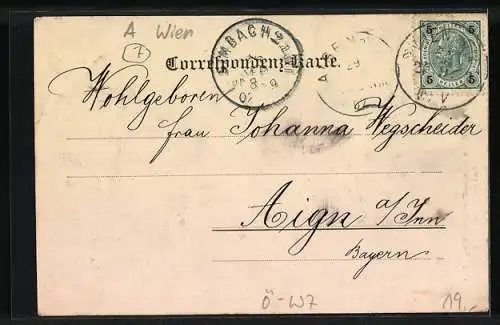 A Wien
7
Correspondenz-Karte.
SIMBACH
Wohlgeboren
Frau Johanna Wegscheider
Aign a/Inn
Bayern
Ö-W7
19,-
5 5
5 5